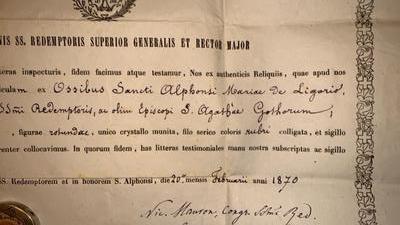 NIS SS. REDEMPTORIS SUPERIOR GENERALIS ET RECTOR MAJOR
teras inspecturis, fidem facimus atque testamur, Nos ex authenticis Reliquiis, quae apud nos
culam ex Ossibus Sancti Alphonsi Mariae De Ligorio,
SSmi Redemptoris, ac olim Episcopi S. Agathae Gothorum;
, figurae rotundae, unico crystallo munita, filo serico coloris rubri colligata, et sigillo
renter collocavimus. In quorum fidem, has litteras testimoniales manu nostra subscriptas ac sigillo
SS. Redemptorem et in honorem S. Alphonsi, die 20 mensis Februarii anni 1870
Nic. Mauron, Congr. SSmi Red.